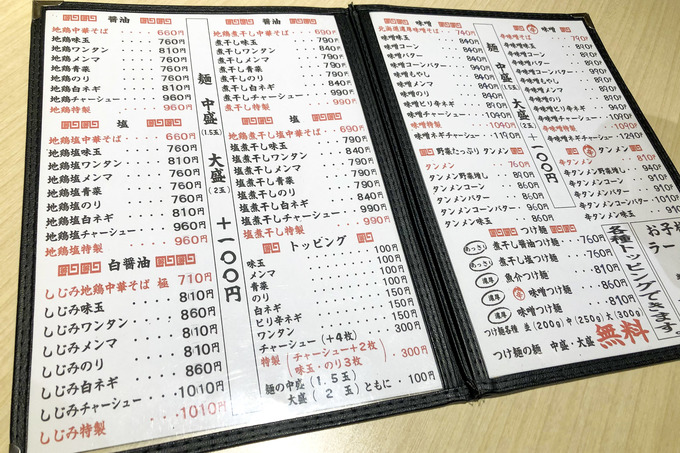 醤油
地鶏中華そば 660円
地鶏味玉 760円
地鶏ワンタン 810円
地鶏メンマ 760円
地鶏青菜 760円
地鶏のり 760円
地鶏白ネギ 810円
地鶏チャーシュー 960円
地鶏特製 960円
塩
地鶏塩中華そば 660円
地鶏塩味玉 760円
地鶏塩ワンタン 810円
地鶏塩メンマ 760円
地鶏塩青菜 760円
地鶏塩のり 760円
地鶏塩白ネギ 810円
地鶏塩チャーシュー 960円
地鶏塩特製 960円
白醤油
しじみ地鶏中華そば 極 710円
しじみ味玉 810円
しじみワンタン 860円
しじみメンマ 810円
しじみのり 810円
しじみ白ネギ 860円
しじみチャーシュー 1010円
しじみ特製 1010円
麺 中盛(1.5玉) 大盛(2玉) +一〇〇円
醤油
地鶏煮干し中華そば 690円
煮干し味玉 790円
煮干しワンタン 840円
煮干しメンマ 790円
煮干し青菜 790円
煮干しのり 790円
煮干し白ネギ 840円
煮干しチャーシュー 990円
煮干し特製 990円
塩
地鶏煮干し塩中華そば 690円
塩煮干し味玉 790円
塩煮干しワンタン 840円
塩煮干しメンマ 790円
塩煮干し青菜 790円
塩煮干しのり 790円
塩煮干し白ネギ 840円
塩煮干しチャーシュー 990円
塩煮干し特製 990円
トッピング
味玉 100円
メンマ 100円
青菜 100円
のり 100円
白ネギ 150円
ピリ辛ネギ 150円
ワンタン 150円
チャーシュー(+4枚) 300円
特製(チャーシュー+2枚 味玉・のり3枚) 300円
麺の中盛(1.5玉)
大盛(2玉)ともに 100円
味噌
北海道濃厚味噌そば 740円
味噌味玉 840円
味噌コーン
味噌バター
味噌コーンバター
味噌もやし
味噌メンマ
味噌のり
味噌ピリ辛ネギ
味噌チャーシュー 1040円
味噌特製 1040円
味噌ネギチャーシュー
麺 中盛(1.5玉) 大盛(2玉) 一〇〇円
辛 味噌
辛味噌そば 790円
辛味噌味玉
辛味噌コーン
辛味噌バター
辛味噌コーンバター
辛味噌もやし
辛味噌メンマ
辛味噌のり
辛味噌ピリ辛ネギ
辛味噌チャーシュー
辛味噌特製
辛味噌ネギチャーシュー
野菜たっぷり タンメン
タンメン 760円
タンメン野菜増し
タンメンコーン
タンメンバター
タンメンコーンバター
タンメン味玉
辛 タンメン
辛タンメン 810円
辛タンメン野菜増し
辛タンメンコーン
辛タンメンバター
辛タンメンコーンバター
辛タンメン味玉
つけ麺
あっさり 煮干し醤油つけ麺 760円
あっさり 煮干し塩つけ麺 760円
濃厚 魚介つけ麺 860円
濃厚 味噌つけ麺 810円
濃厚 辛 味噌つけ麺 860円
つけ麺各種 並(200g) 中(250g) 大(300g)
つけ麺の麺 中盛・大盛 無料
各種トッピングできます。
お子様
ラー